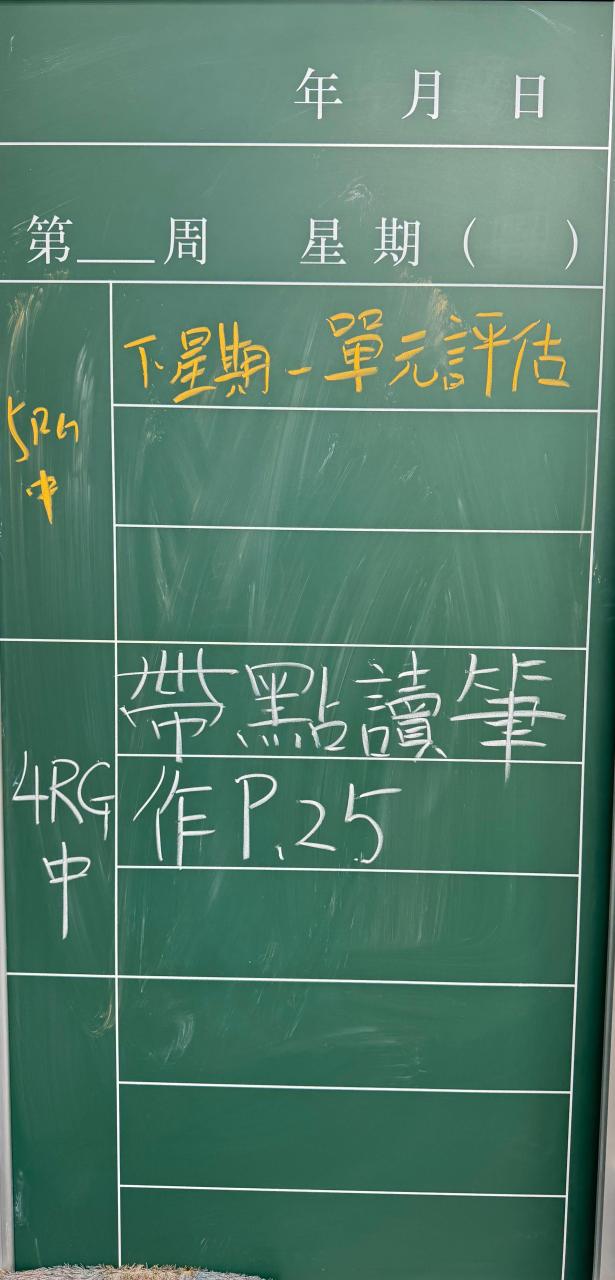 年 月 日
第___周 星期( )
下星期一單元評估
5RG
中
帶點讀筆
4RG
中
作P.25